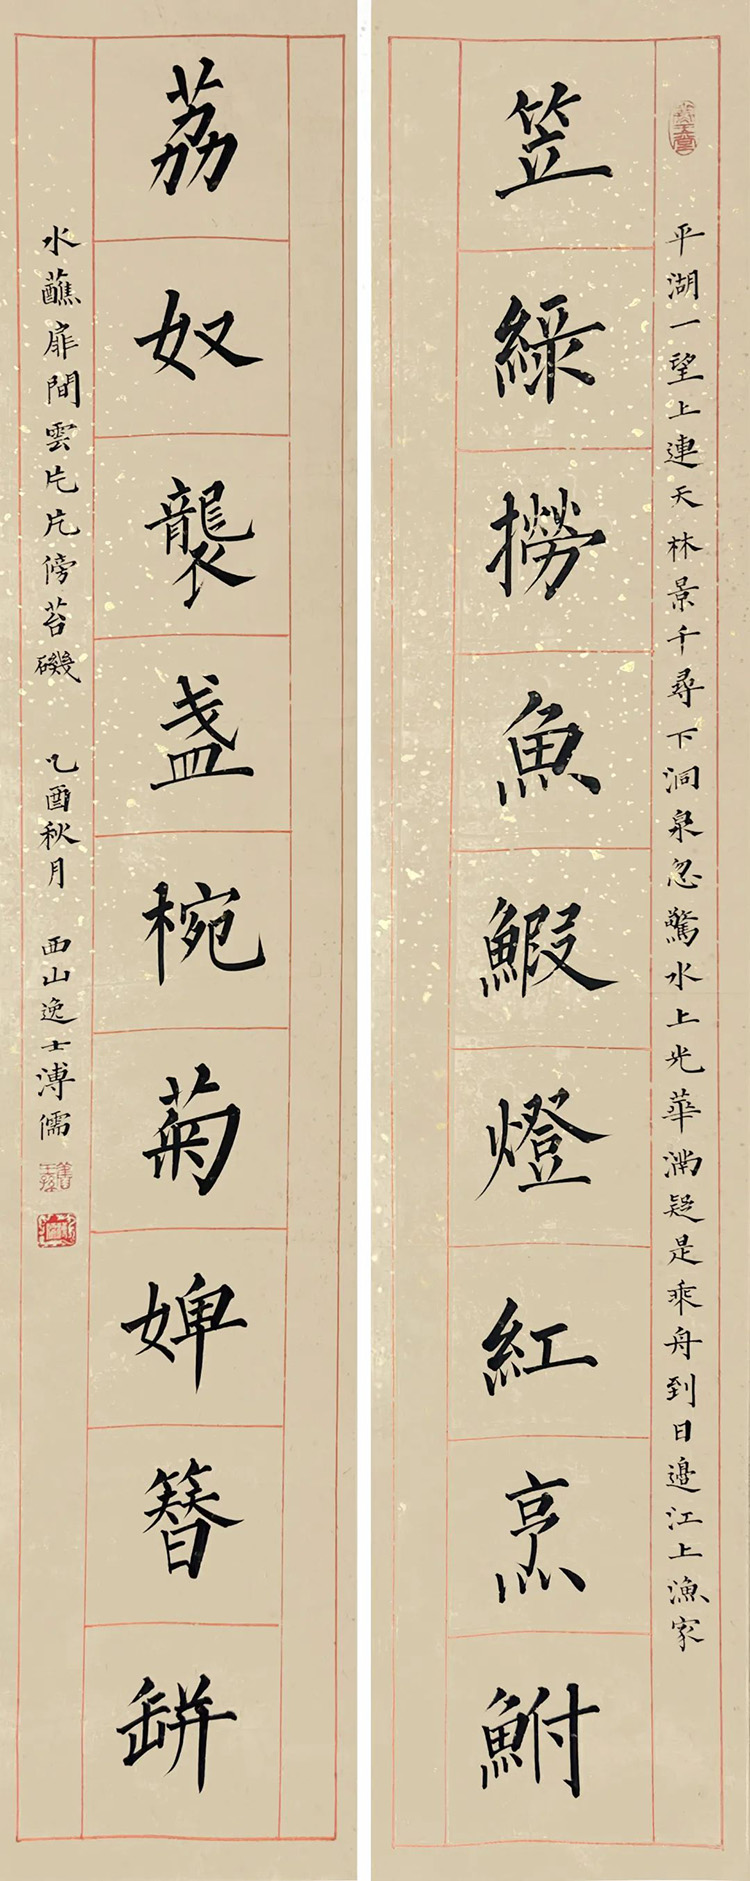 平湖一望上連天林景千尋下洞泉忽驚水上光華滿疑是乘舟到日邊江上漁家
笠綠撈魚鰕燈紅烹鮒
荔奴襲盞椀菊婢簪缾
水蘸扉間雲片片傍苔磯
乙酉秋月
西山逸士溥儒